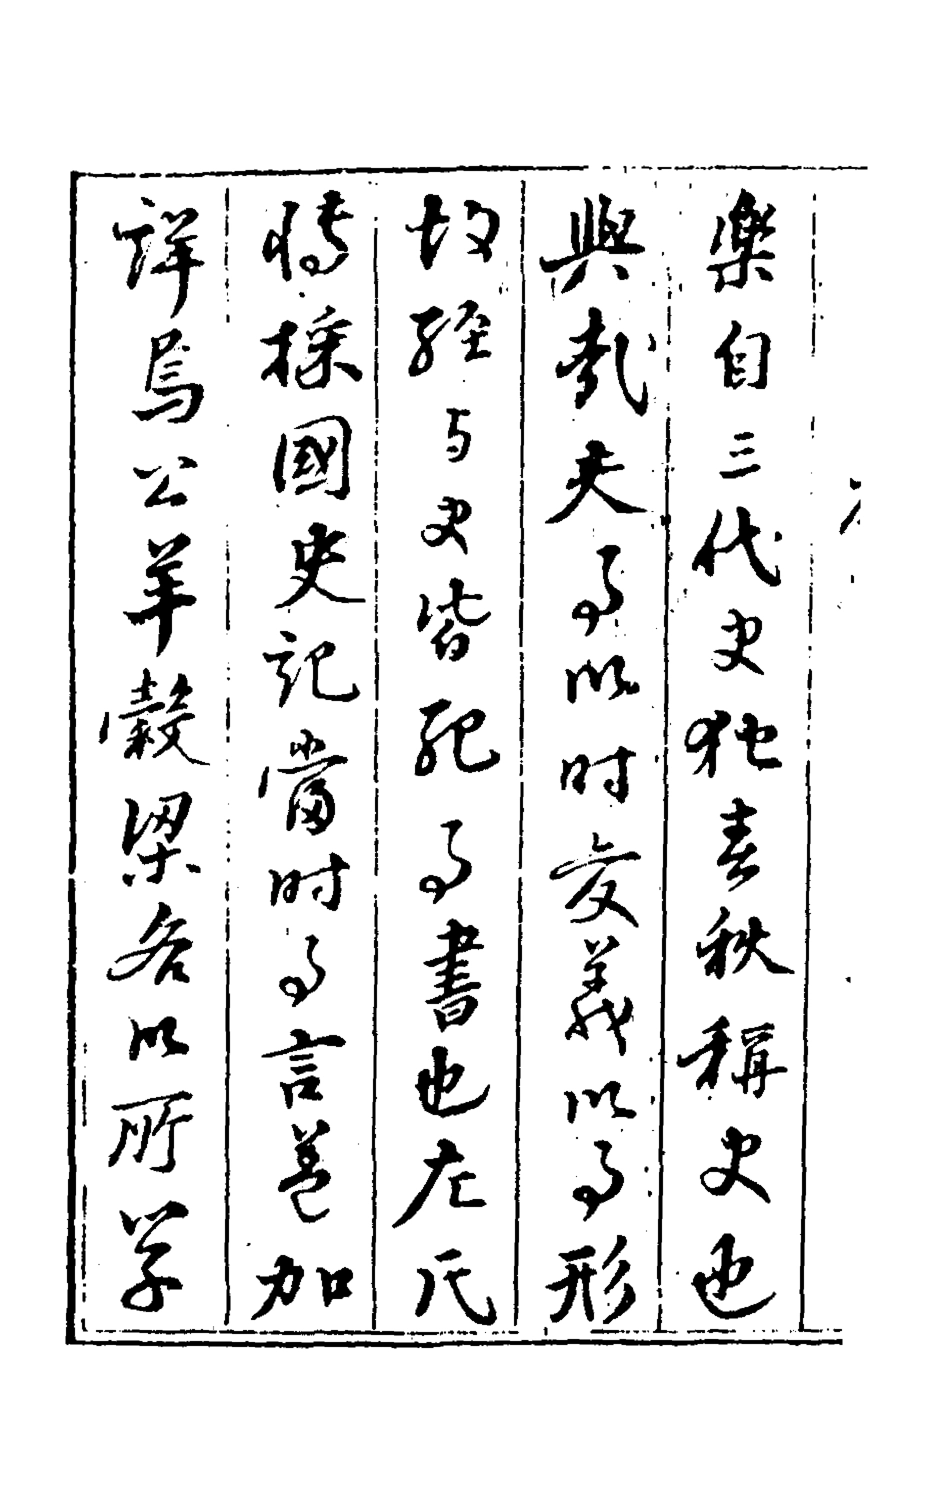 樂自三代史独春秋稱史也
與執夫事以时変義以事形
故經与史皆紀事書也左氏
博採國史記當时事言益加
詳焉公羊穀梁各以所学